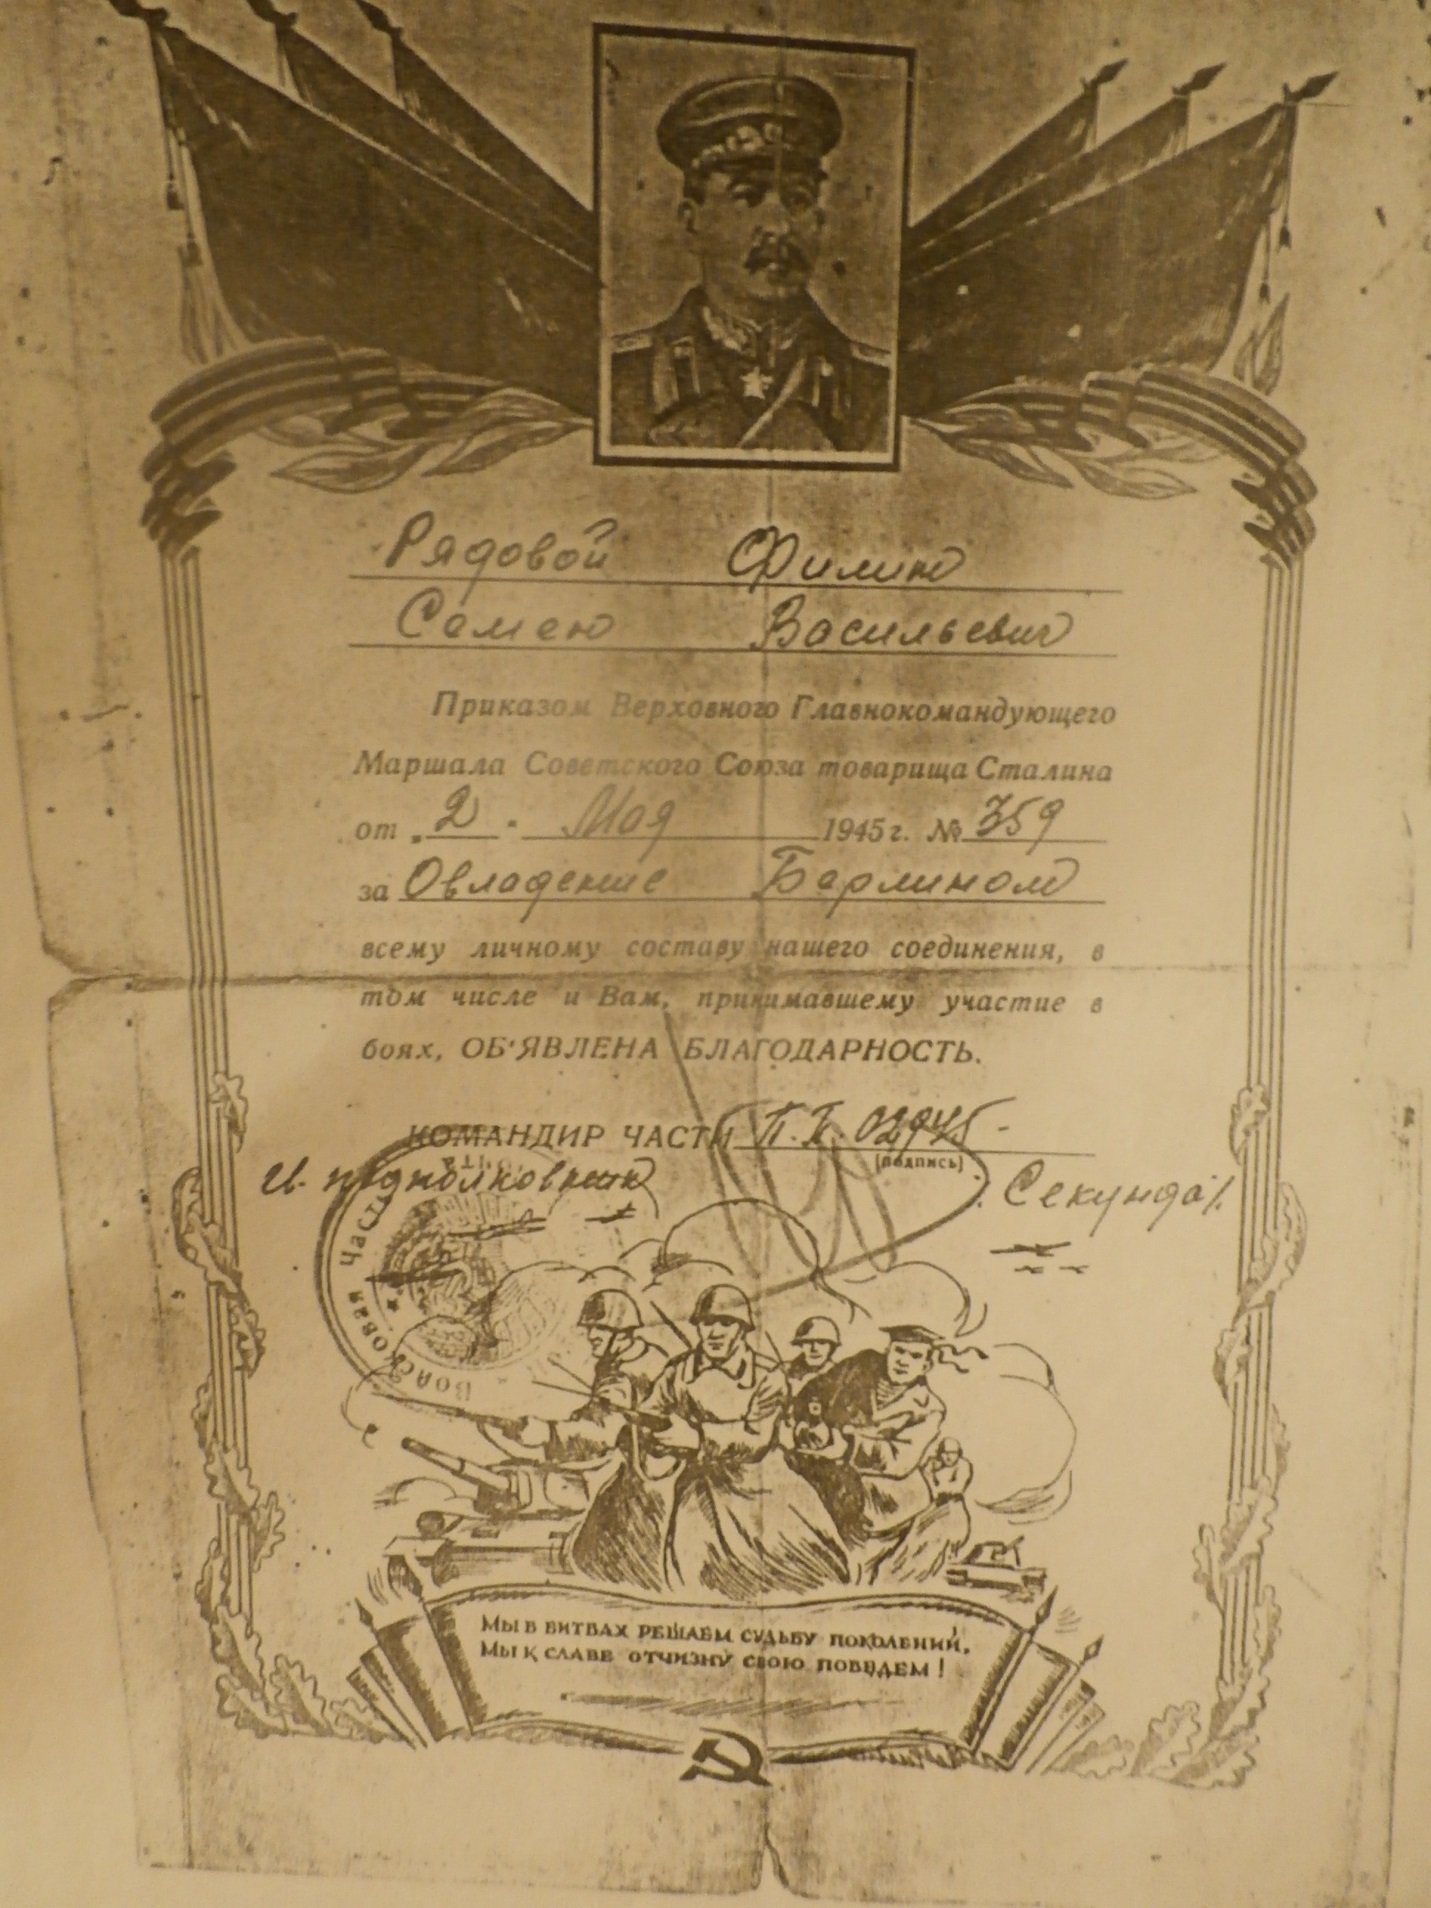 Рядовой Филин
Семен Васильевич
Приказом Верховного Главнокомандующего
Маршала Советского Союза товарища Сталина
от „2" Мая 1945 г. № 359
за Овладение Берлином
всему личному составу нашего соединения, в
том числе и Вам, принимавшему участие в
боях, ОБ'ЯВЛЕНА БЛАГОДАРНОСТЬ.
КОМАНДИР ЧАСТИ П.П. 02945 -
(подпись)
подполковник Секунда
Войсковая часть
МЫ В БИТВАХ РЕШАЕМ СУДЬБУ ПОКОЛЕНИЙ,
МЫ К СЛАВЕ ОТЧИЗНУ СВОЮ ПОВЕДЕМ!